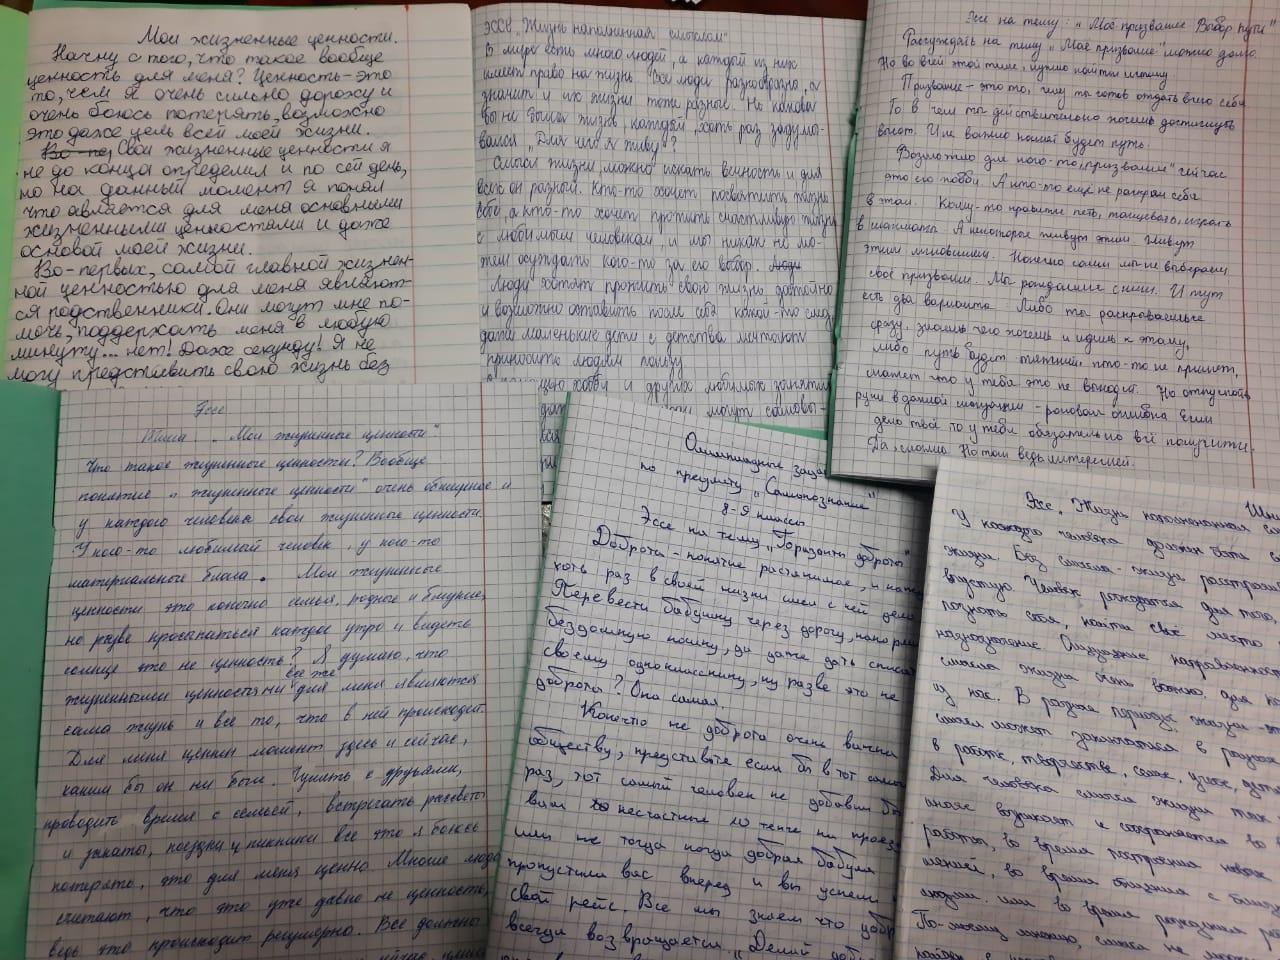 Мои жизненные ценности.
Начну с того, что такое вообще
ценность для меня? Ценность – это
то, чем я очень сильно дорожу и
очень боюсь потерять, возможно
это даже цель всей моей жизни.
Свои жизненные ценности я
не до конца определил и по сей день,
но на данный момент я понял
что является для меня основными
жизненными ценностями и даже
основой моей жизни.
Во-первых, самой главной жизнен-
ной ценностью для меня являют-
ся родственники. Они могут мне по-
мочь, поддержать меня в любую
минуту... нет! Даже секунду! Я не
могу представить свою жизнь без
Эссе „Жизнь наполненная смыслом"
В мире есть много людей, а каждый из них
имеет право на жизнь. Все люди разнообразны, а
значит и их жизни тоже разные. Но какова
бы не была жизнь, каждый, хоть раз задумы-
вался „Для чего я живу?
Смысл жизни, можно искать вечность и для
всех он разный. Кто-то хочет посвятить жизнь
себе, а кто-то хочет прожить счастливую жизнь
с любимым человеком, и мы никак не мо-
жем осуждать кого-то за его выбор.
Люди хотят прожить свою жизнь достойно
и возможно оставить после себя какой-то след,
даже маленькие дети с детства мечтают
приносить людям пользу.
хобби и других любимых занятий
могут самовы-
Эссе на тему: „Моё призвание. Выбор пути"
Рассуждать на тему „Моё призвание" можно долго.
Но во всей этой теме, нужно найти истину.
Призвание – это то, чему ты готов отдать всего себя.
То в чем ты действительно хочешь достигнуть
высот. И не важно какой будет путь.
Возможно для кого-то „призвание" сейчас
это его хобби. А кто-то ещё не раскрыл себя
в этом. Кому-то нравится петь, танцевать, играть
в шахматы. А некоторые живут этим. Живут
этим мгновением. Конечно сами мы не выбираем
своё призвание. Мы рождаемся с ним. И тут
есть два варианта. Либо ты раскрываешься
сразу, знаешь чего хочешь и идешь к этому,
либо путь будет тяжкий, кто-то не примет,
скажет что у тебя это не выходит. Но опускать
руки в данной ситуации – роковая ошибка. Если
дело твоё то у тебя обязательно всё получится.
Да, сложно. Но так ведь интересней.
Эссе
Тема: „Мои жизненные ценности"
Что такое жизненные ценности? Вообще
понятие „жизненные ценности" очень обширное и
у каждого человека свои жизненные ценности.
У кого-то любимый человек, у кого-то
материальные блага. Мои жизненные
ценности это конечно семья, родные и близкие,
но разве просыпаться каждое утро и видеть
солнце это не ценность? Я думаю, что
все же
жизненными ценностями для меня являются
сама жизнь и все то, что в ней происходит.
Для меня ценен момент здесь и сейчас,
каким бы он ни был. Гулять с друзьями,
проводить время с семьей, встречать рассветы
и закаты, поездки и пикники все это я боюсь
потерять, это для меня ценно. Многие люди
считают, что это уже давно не ценность,
ведь это происходит регулярно. Все должны
Олимпиадные зада
по предмету „Самопознание"
8-9 классы
Эссе на тему „Горизонты доброты"
Доброта – понятие растяжимое, и
хоть раз в своей жизни имел с ней дело
Перевести бабушку через дорогу, накорми
бездомную кошку, да даже дать списат
своему однокласснику, ну разве это не
доброта? Она самая.
Конечно же доброта очень важна
обществу, представьте если бы в тот самый
раз, тот самый человек не добавил бы
вам несчастные 10 тенге на проезд
или же тогда когда добрая бабуля
пропустила вас вперед и вы успели
свой рейс. Все мы знаем что добро
всегда возвращается. „Делай добр
Эссе „Жизнь наполненная
У каждого человека должен быть
жизни. Без смысла – жизнь
впустую. Человек рождается для того,
познать себя, найти своё место
назначение.
смысла жизни очень важно для
из нас. В разные периоды жизни
смысл может заключаться в разном
в работе, творчестве, семье, учёбе,
Для человека смысл жизни так
иначе возникает и сохраняется во
работы, во время построения новых
, во время общения с близ
людьми или во время рождения
По-моему мнению, смысл не мож